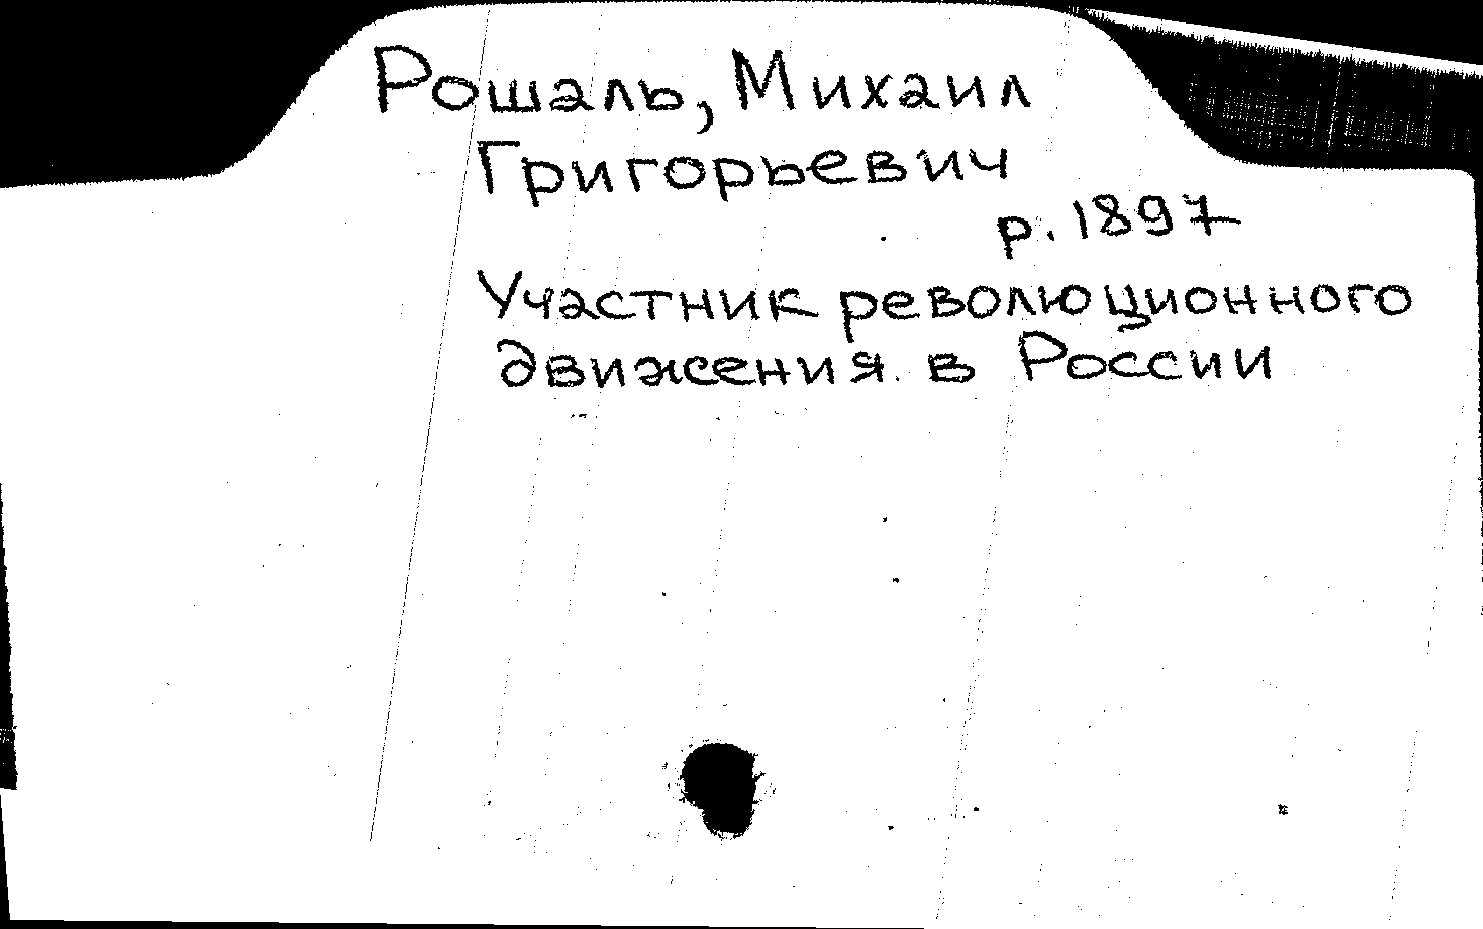 Рошаль, Михаил
Григорьевич
р. 1897
Участник революционного
движения в России